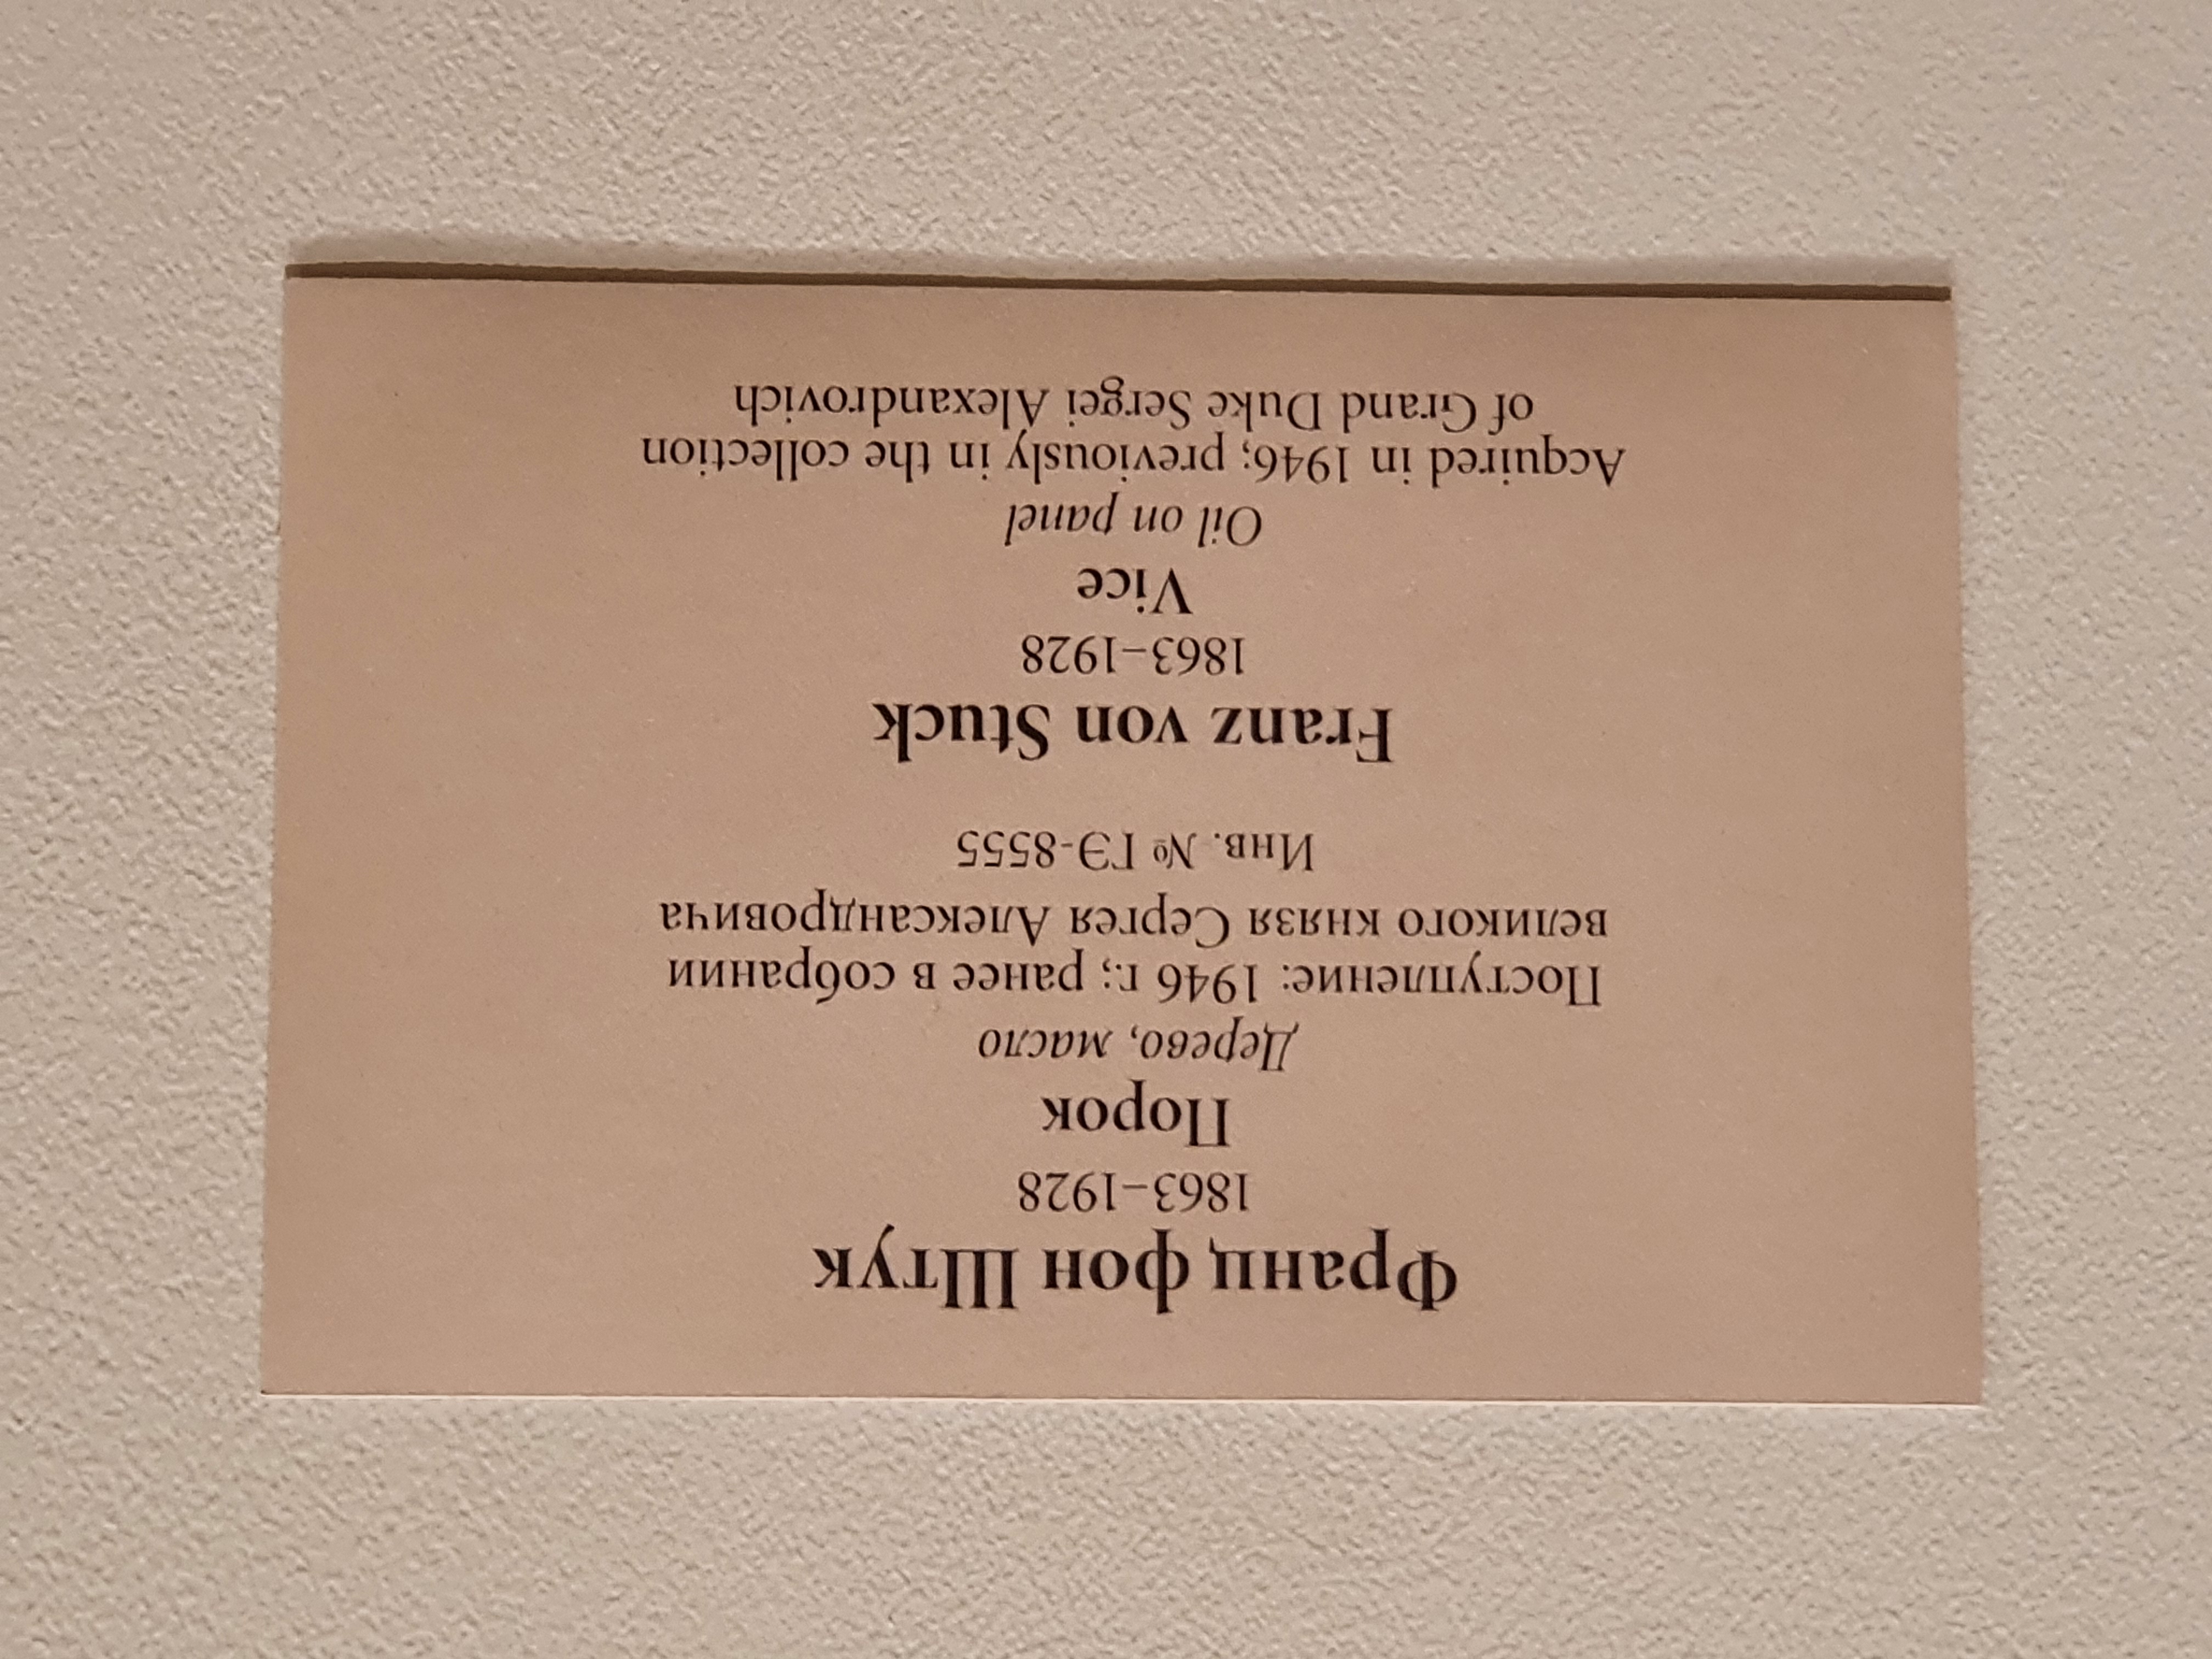 Франц фон Штук
1863–1928
Порок
Дерево, масло
Поступление: 1946 г.; ранее в собрании
великого князя Сергея Александровича
Инв. № ГЭ-8555
Franz von Stuck
1863–1928
Vice
Oil on panel
Acquired in 1946; previously in the collection
of Grand Duke Sergei Alexandrovich